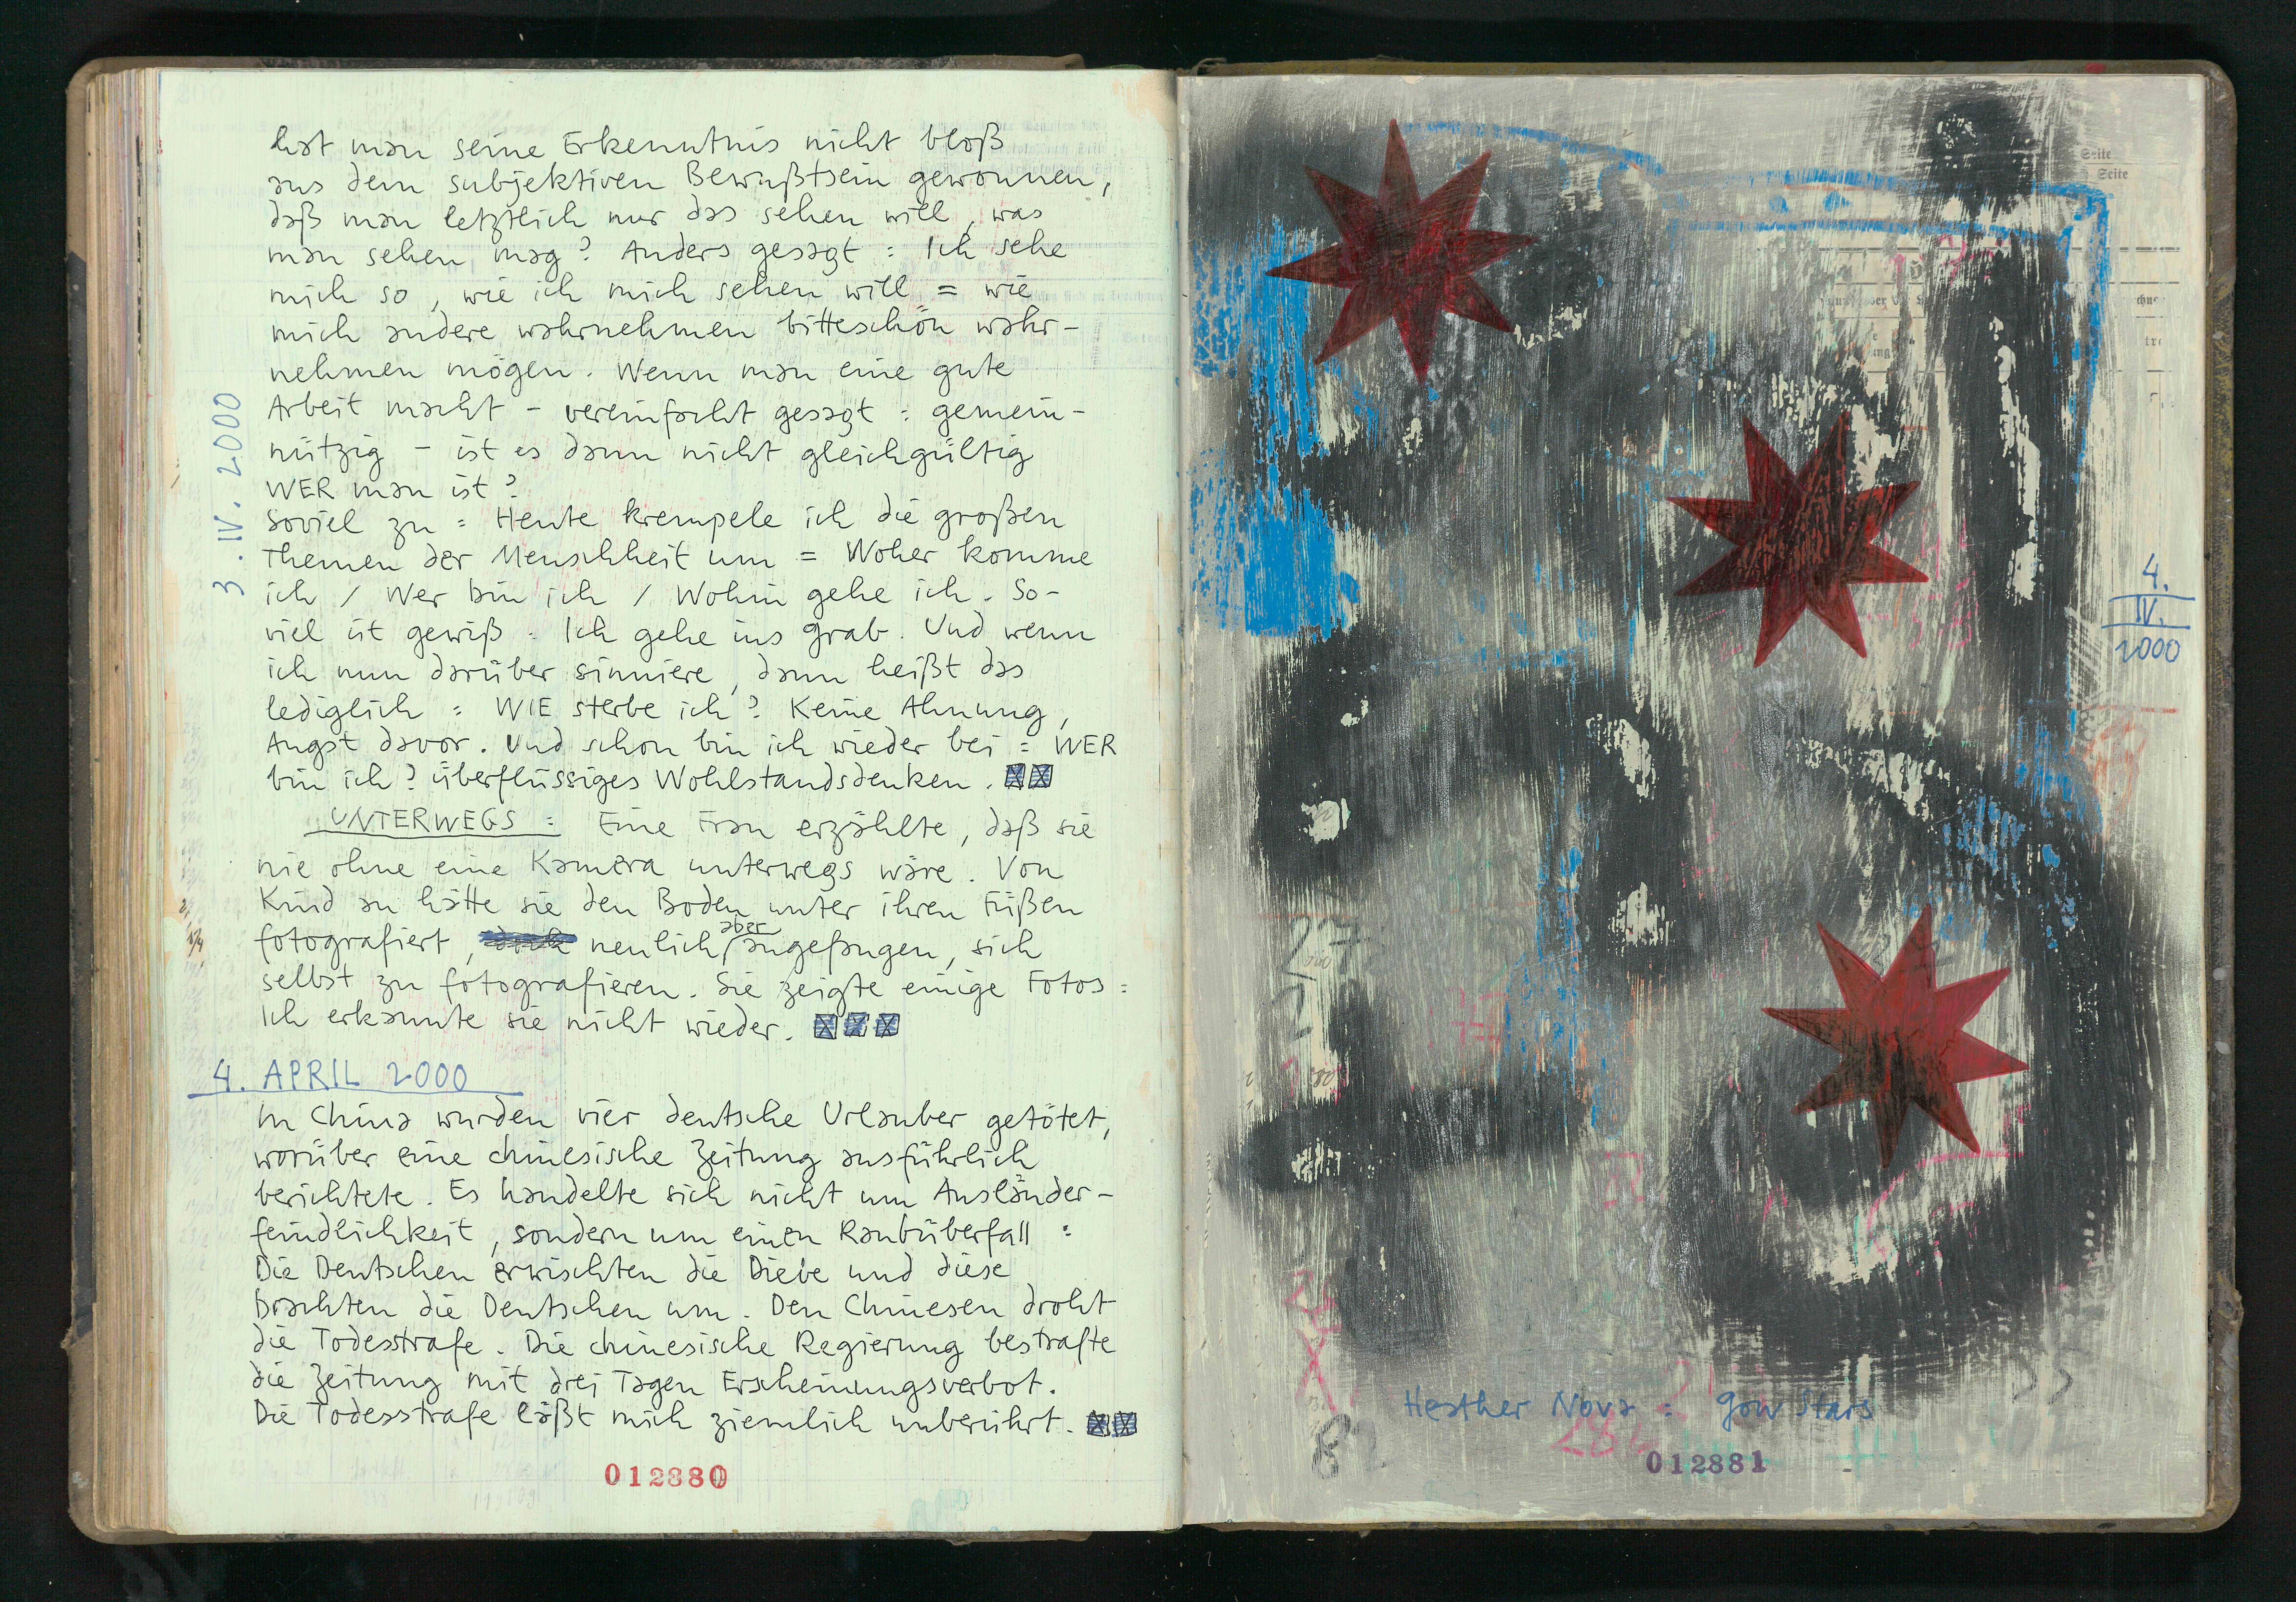 hat man seine Erkenntnis nicht bloß
aus dem subjektiven Bewußtsein gewonnen,
daß man letztlich nur das sehen will, was
man sehen mag? Anders gesagt: Ich sehe
mich so, wie ich mich sehen will = wie
mich andere wahrnehmen bitteschön wahr-
nehmen mögen. Wenn man eine gute
Arbeit macht - vereinfacht gesagt: gemein-
nützig - ist es dann nicht gleichgültig
WER man ist?
Soviel zu: Heute krempele ich die großen
Themen der Menschheit um = Woher komme
ich / Wer bin ich / Wohin gehe ich. So-
viel ist gewiß: Ich gehe ins Grab. Und wenn
ich nun darüber sinniere, dann heißt das
lediglich: WIE sterbe ich? Keine Ahnung,
Angst davor. Und schon bin ich wieder bei: WER
bin ich? überflüssiges Wohlstandsdenken.
3. IV. 2000
UNTERWEGS: Eine Frau erzählte, daß sie
nie ohne eine Kamera unterwegs wäre. Von
Kind an hätte sie den Boden unter ihren Füßen
fotografiert, neulich aber angefangen, sich
selbst zu fotografieren. Sie zeigte einige Fotos:
Ich erkannte sie nicht wieder.
4. APRIL 2000
In China wurden vier deutsche Urlauber getötet,
worüber eine chinesische Zeitung ausführlich
berichtete. Es handelte sich nicht um Ausländer-
feindlichkeit, sondern um einen Raubüberfall:
Die Deutschen erwischten die Diebe und diese
brachten die Deutschen um. Den Chinesen droht
die Todesstrafe. Die chinesische Regierung bestrafte
die Zeitung mit drei Tagen Erscheinungsverbot.
Die Todesstrafe läßt mich ziemlich unberührt.
012880
Seite
Seite
4.
IV.
2000
Heather Nova: Gow Stars
82
012881